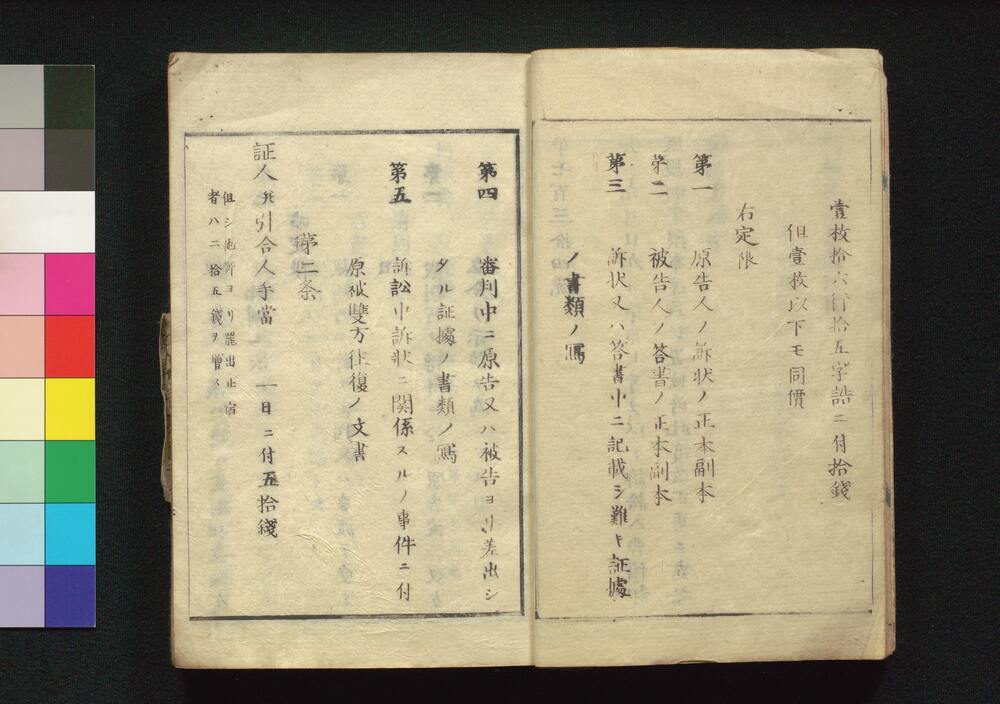 壹枚拾六行拾五字詰ニ付拾錢
但壹枚以下モ同價
右定限
第一 原告人ノ訴状ノ正本副本
第二 被告人ノ答書ノ正本副本
第三 訴状又ハ答書中ニ記載シ難キ証據
ノ書類ノ寫
第四 審判中ニ原告又ハ被告ヨリ差出シ
タル証據ノ書類ノ寫
第五 訴訟中訴状ニ関係スルノ事件ニ付
原被雙方往復ノ文書
第二条
証人并引合人手當 一日ニ付五拾錢
但シ他所ヨリ罷出止宿
者ハ二拾五錢ヲ増ス